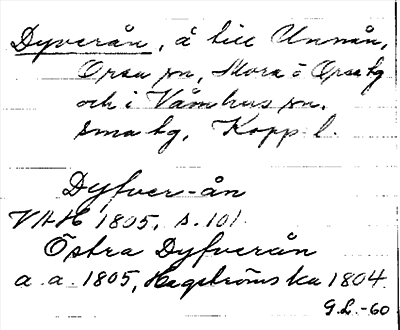 Dyverån, å till Unnån,
Orsa sn, Mora ö Orsa tg
och i Våmhus sn.
sma tg, Kopp l.
Dyfver-ån
VAH 1805, s. 101.
Östra Dyfverån
a. a. 1805, Hagströms ka 1804.
G.L.-60